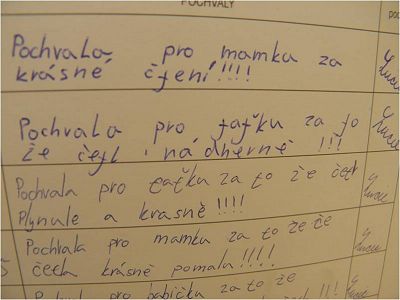 POCHVALY
Pochvala pro mamku za
krásné čtení!!!!
Pochvala pro taťku za to
že četl nádherně !!!
Pochvala pro taťku za to že četl
Plynule a krasně!!!!
Pochvala pro mamku za to že če
četla krásně pomalu!!!!
pro babičku za to že